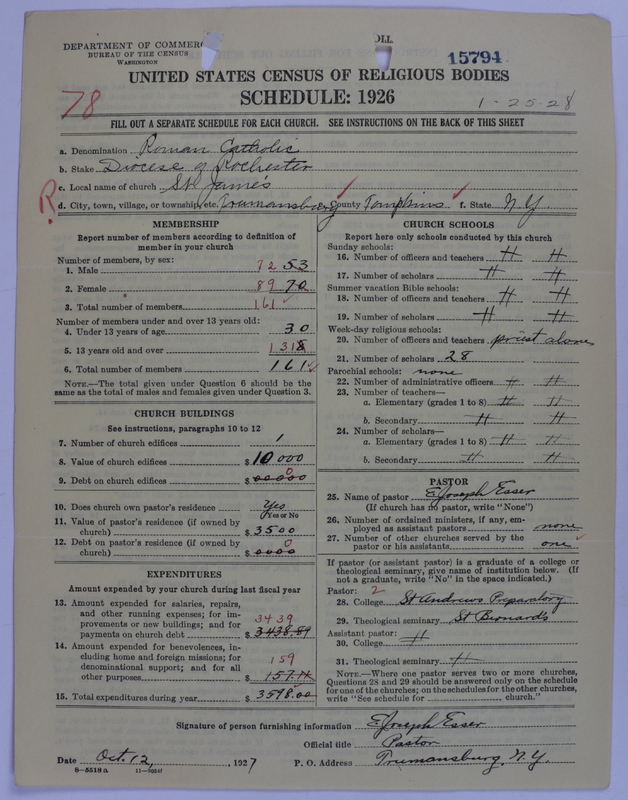 DEPARTMENT OF COMMERC
BUREAU OF THE CENSUS
WASHINGTON
15794
UNITED STATES CENSUS OF RELIGIOUS BODIES
SCHEDULE: 1926
78
1-25-28
FILL OUT A SEPARATE SCHEDULE FOR EACH CHURCH. SEE INSTRUCTIONS ON THE BACK OF THIS SHEET
a. Denomination Roman Catholic
b. Stake Diocese of Rochester
c. Local name of church St. James
R.
d. City, town, village, or township, etc. Trumansburg e. County Tompkins f. State N.Y.
MEMBERSHIP
Report number of members according to definition of member in your church
Number of members, by sex:
1. Male 72 53
2. Female 89 70
3. Total number of members 161
Number of members under and over 13 years old:
4. Under 13 years of age 30
5. 13 years old and over 131
6. Total number of members 161
NOTE.—The total given under Question 6 should be the
same as the total of males and females given under Question 3.
CHURCH BUILDINGS
See instructions, paragraphs 10 to 12
7. Number of church edifices 1
8. Value of church edifices $ 10000
9. Debt on church edifices $ 0
10. Does church own pastor's residence Yes
Yes or No
11. Value of pastor's residence (if owned by
church) $ 3500
12. Debt on pastor's residence (if owned by
church) $ 0
EXPENDITURES
Amount expended by your church during last fiscal year
13. Amount expended for salaries, repairs,
and other running expenses; for im-
provements or new buildings; and for 3439
payments on church debt $ 3438.89
14. Amount expended for benevolences, in-
cluding home and foreign missions; for
denominational support; and for all 159
other purposes $
15. Total expenditures during year $ 3598.00
CHURCH SCHOOLS
Report here only schools conducted by this church
Sunday schools:
16. Number of officers and teachers
17. Number of scholars
Summer vacation Bible schools:
18. Number of officers and teachers
19. Number of scholars
Week-day religious schools:
20. Number of officers and teachers priest alone
21. Number of scholars 28
Parochial schools: none
22. Number of administrative officers
23. Number of teachers—
a. Elementary (grades 1 to 8)
b. Secondary
24. Number of scholars—
a. Elementary (grades 1 to 8)
b. Secondary
PASTOR
25. Name of pastor E. Joseph Esser
(If church has no pastor, write "None")
26. Number of ordained ministers, if any, em-
ployed as assistant pastors none
27. Number of other churches served by the
pastor or his assistants one
If pastor (or assistant pastor) is a graduate of a college or
theological seminary, give name of institution below. (If
not a graduate, write "No" in the space indicated.)
Pastor: 2
28. College St Andrews Preparatory
29. Theological seminary St Bernards
Assistant pastor:
30. College
31. Theological seminary
NOTE.—Where one pastor serves two or more churches,
Questions 28 and 29 should be answered only on the schedule
for one of the churches; on the schedules for the other churches,
write "See schedule for church."
Signature of person furnishing information E. Joseph Esser
Official title Pastor
Date Oct. 12, 1927 P. O. Address Trumansburg, N.Y.
8-5518a